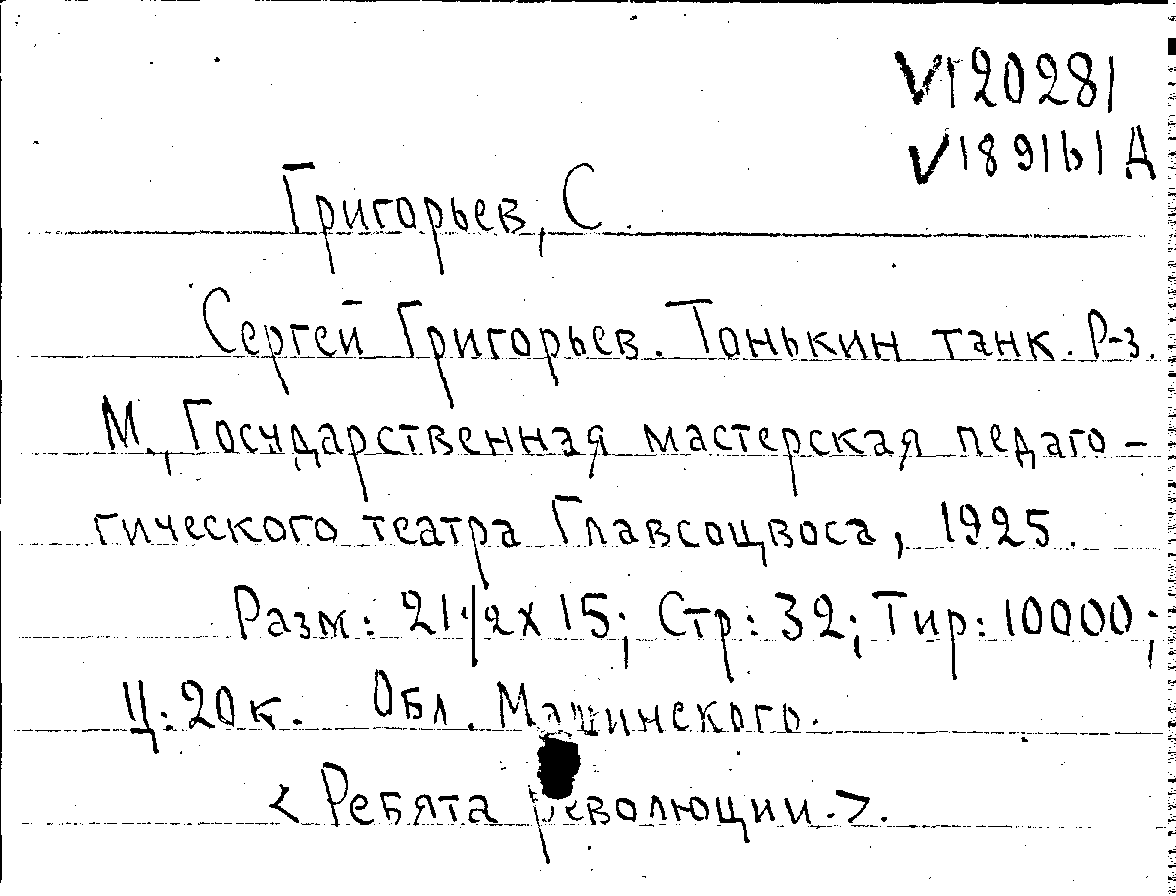 V120281
V189161 Д
Григорьев, С.
Сергей Григорьев. Тонькин танк. Р-з.
М., Государственная мастерская педаго-
гического театра Главсоцвоса, 1925.
Разм: 21 1/2 х 15; Стр: 32; Тир: 10000;
Ц: 20 к. Обл. Машинского.
< Ребята революции. >.